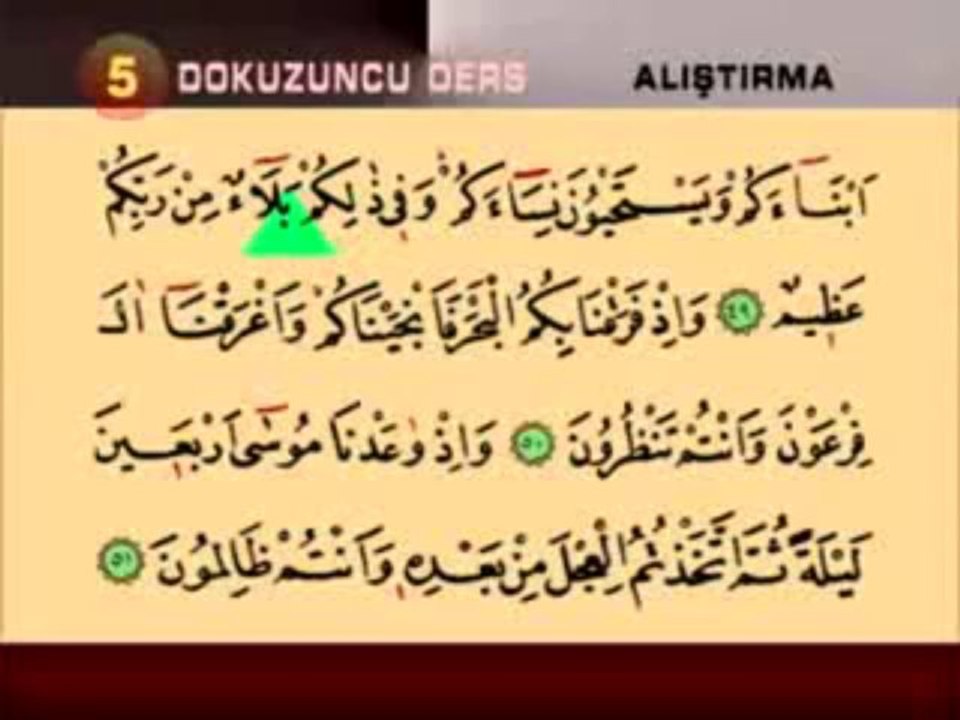 5 DOKUZUNCU DERS ALIŞTIRMA
اَبْنَٓاءَكُمْ وَيَسْتَحْيُونَ نِسَٓاءَكُمْ وَفٖي ذٰلِكُمْ بَلَٓاءٌ مِنْ رَبِّكُمْ
عَظٖيمٌ ٤٩ وَاِذْ فَرَقْنَا بِكُمُ الْبَحْرَ فَاَنْجَيْنَاكُمْ وَاَغْرَقْنَٓا اٰلَ
فِرْعَوْنَ وَاَنْتُمْ تَنْظُرُونَ ٥٠ وَاِذْ وٰعَدْنَا مُوسٰٓى اَرْبَعٖينَ
لَيْلَةً ثُمَّ اتَّخَذْتُمُ الْعِجْلَ مِنْ بَعْدِهٖ وَاَنْتُمْ ظَالِمُونَ ٥١